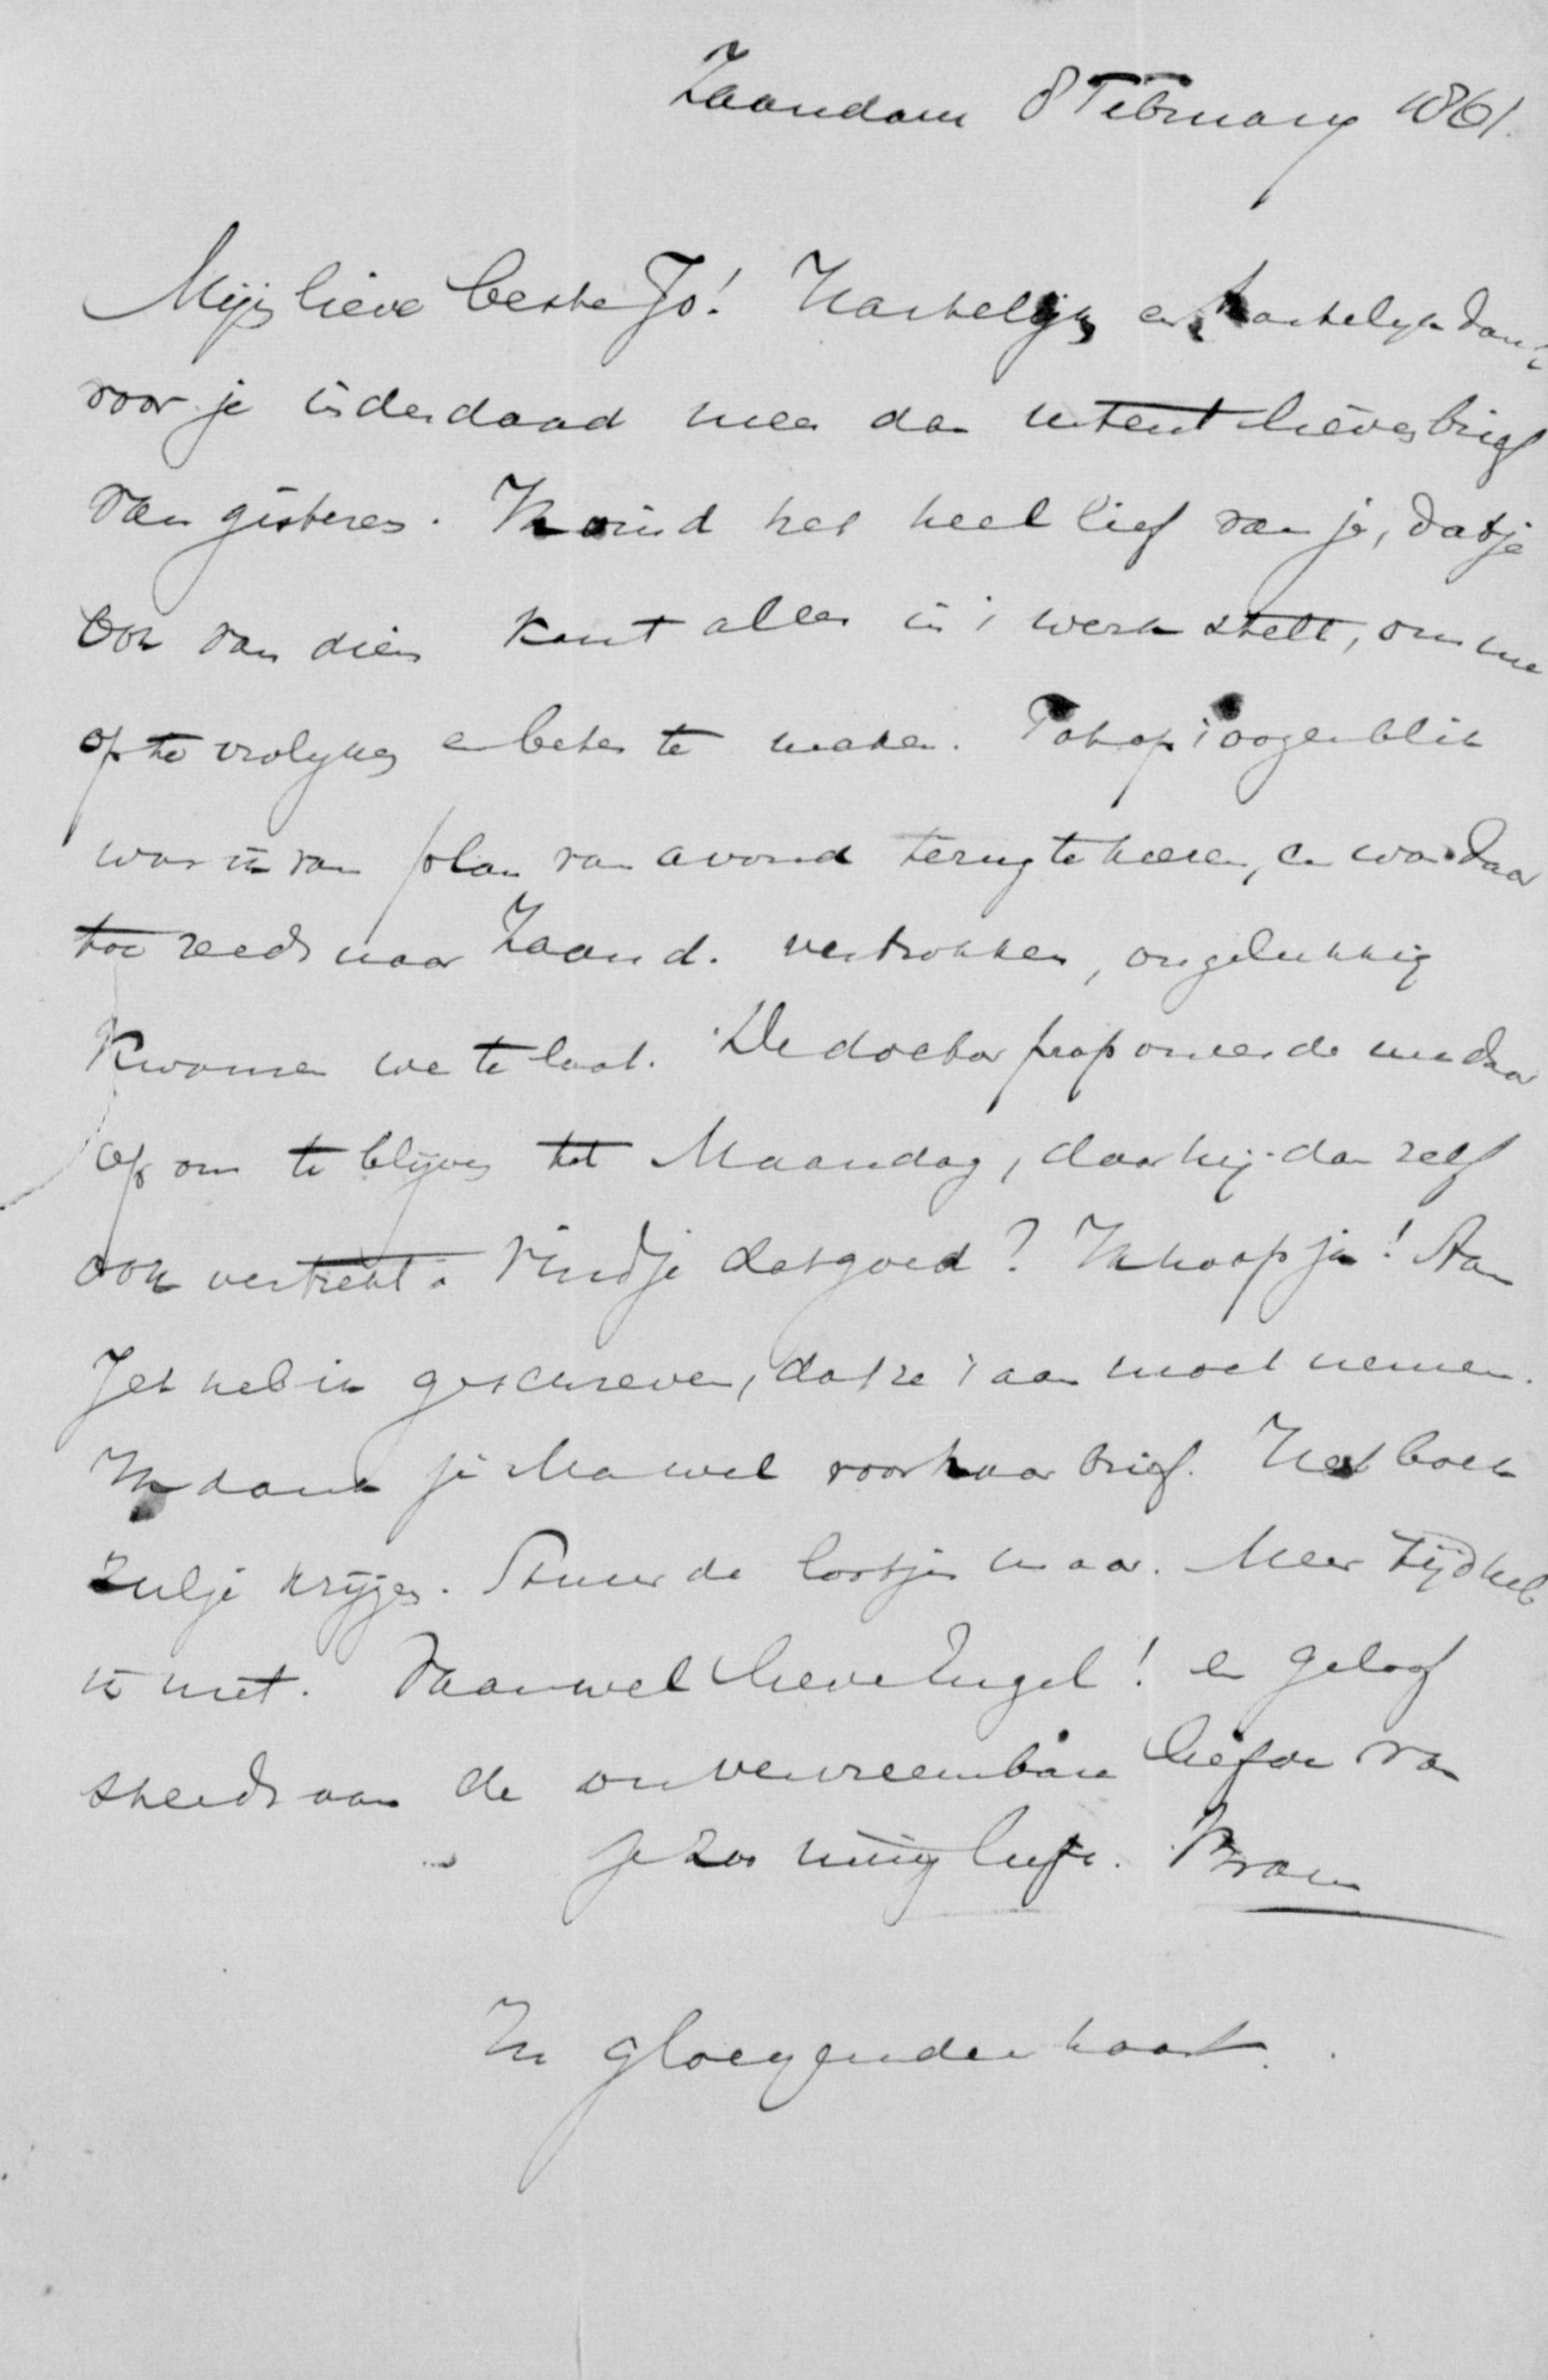 Zaandam 8 February 1861.
Mijn lieve beste Jo! Hartelijk en hartelijk dank
voor je inderdaad meer dan attent lieven brief
van gisteren. Ik vind het heel lief van je, dat je
ook van dien kant alles in 't werk stelt, om me
op te vrolyken en beter te maken. Tot op 't oogenblik
was ik van plan van avond terug te keeren, en was daar
toe reeds naar Zaand. vertrokken, ongelukkig
kwamen we te laat. De doctor proponeerde me daar
op om te blijven tot Maandag, daar hij dan zelf
ook vertrekt. Vind je dat goed? Ik hoop ja! Aan
Jet heb ik geschreven, dat ze 't aan moet nemen.
Ik dank je Ma wel voor haar brief. Het boek
zul je krijgen. Stuur de lootjes maar. Meer tijd heb
ik niet. Vaarwel lieve Engel! en geloof
steeds aan de onverwreembare liefde van
je zoo innig liefh. Bram
In gloeyenden haast.